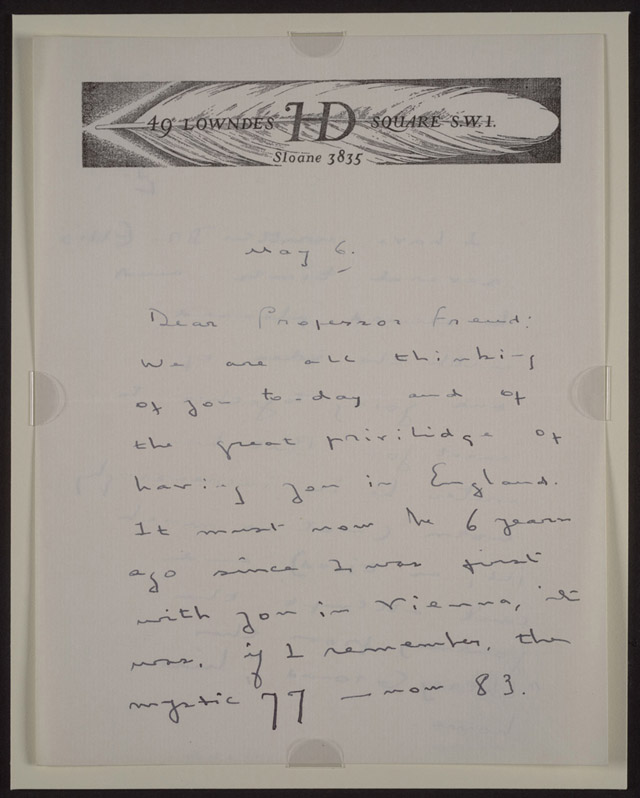 49 LOWNDES HD SQUARE S.W.1.
Sloane 3835
May 6.
Dear Professor Freud:
We are all thinking
of you to-day and of
the great privilidge of
having you in England.
It must now be 6 years
ago since I was first
with you in Vienna, it
was, if I remember, the
mystic 77 — now 83.